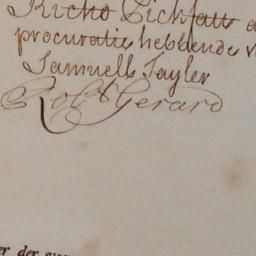 Richd Pickfatt a
procuratie hebbende v
Samuell Tayler
Robt Gerard
er der